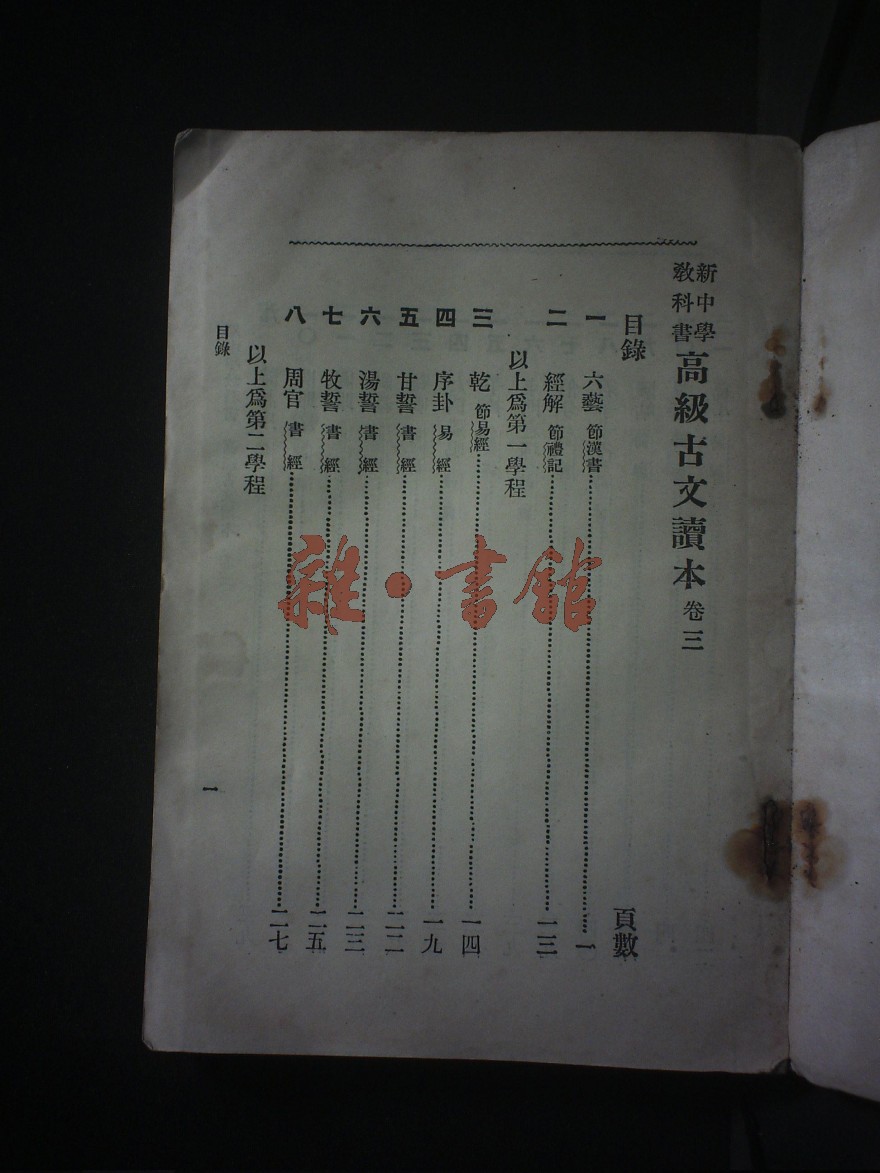 新中學
教科書
高級古文讀本 卷三
目錄 頁數
一 六藝 節漢書 一
二 經解 節禮記 一三
以上爲第一學程
三 乾 節易經 一四
四 序卦 易經 一九
五 甘誓 書經 二二
六 湯誓 書經 二三
七 牧誓 書經 二五
八 周官 書經 二七
以上爲第二學程
目錄
一
雜·書館